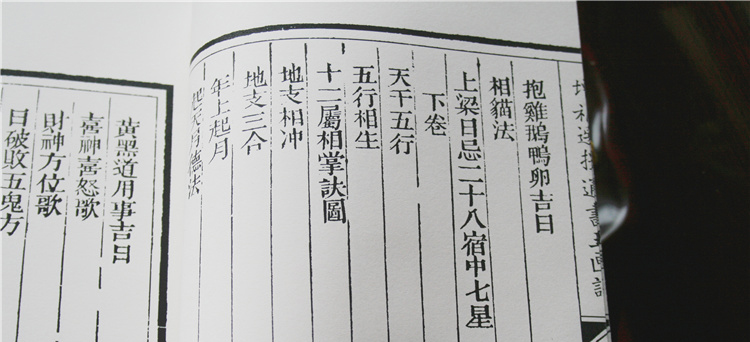 抱雞鵝鴨卵吉日
相貓法
上梁日忌二十八宿中七星
下卷
天干五行
五行相生
十二屬相掌訣圖
地支相冲
地支三合
年上起月
起天月德法
黃黑道用事吉日
喜神喜怒歌
財神方位歌
日破敗五鬼方